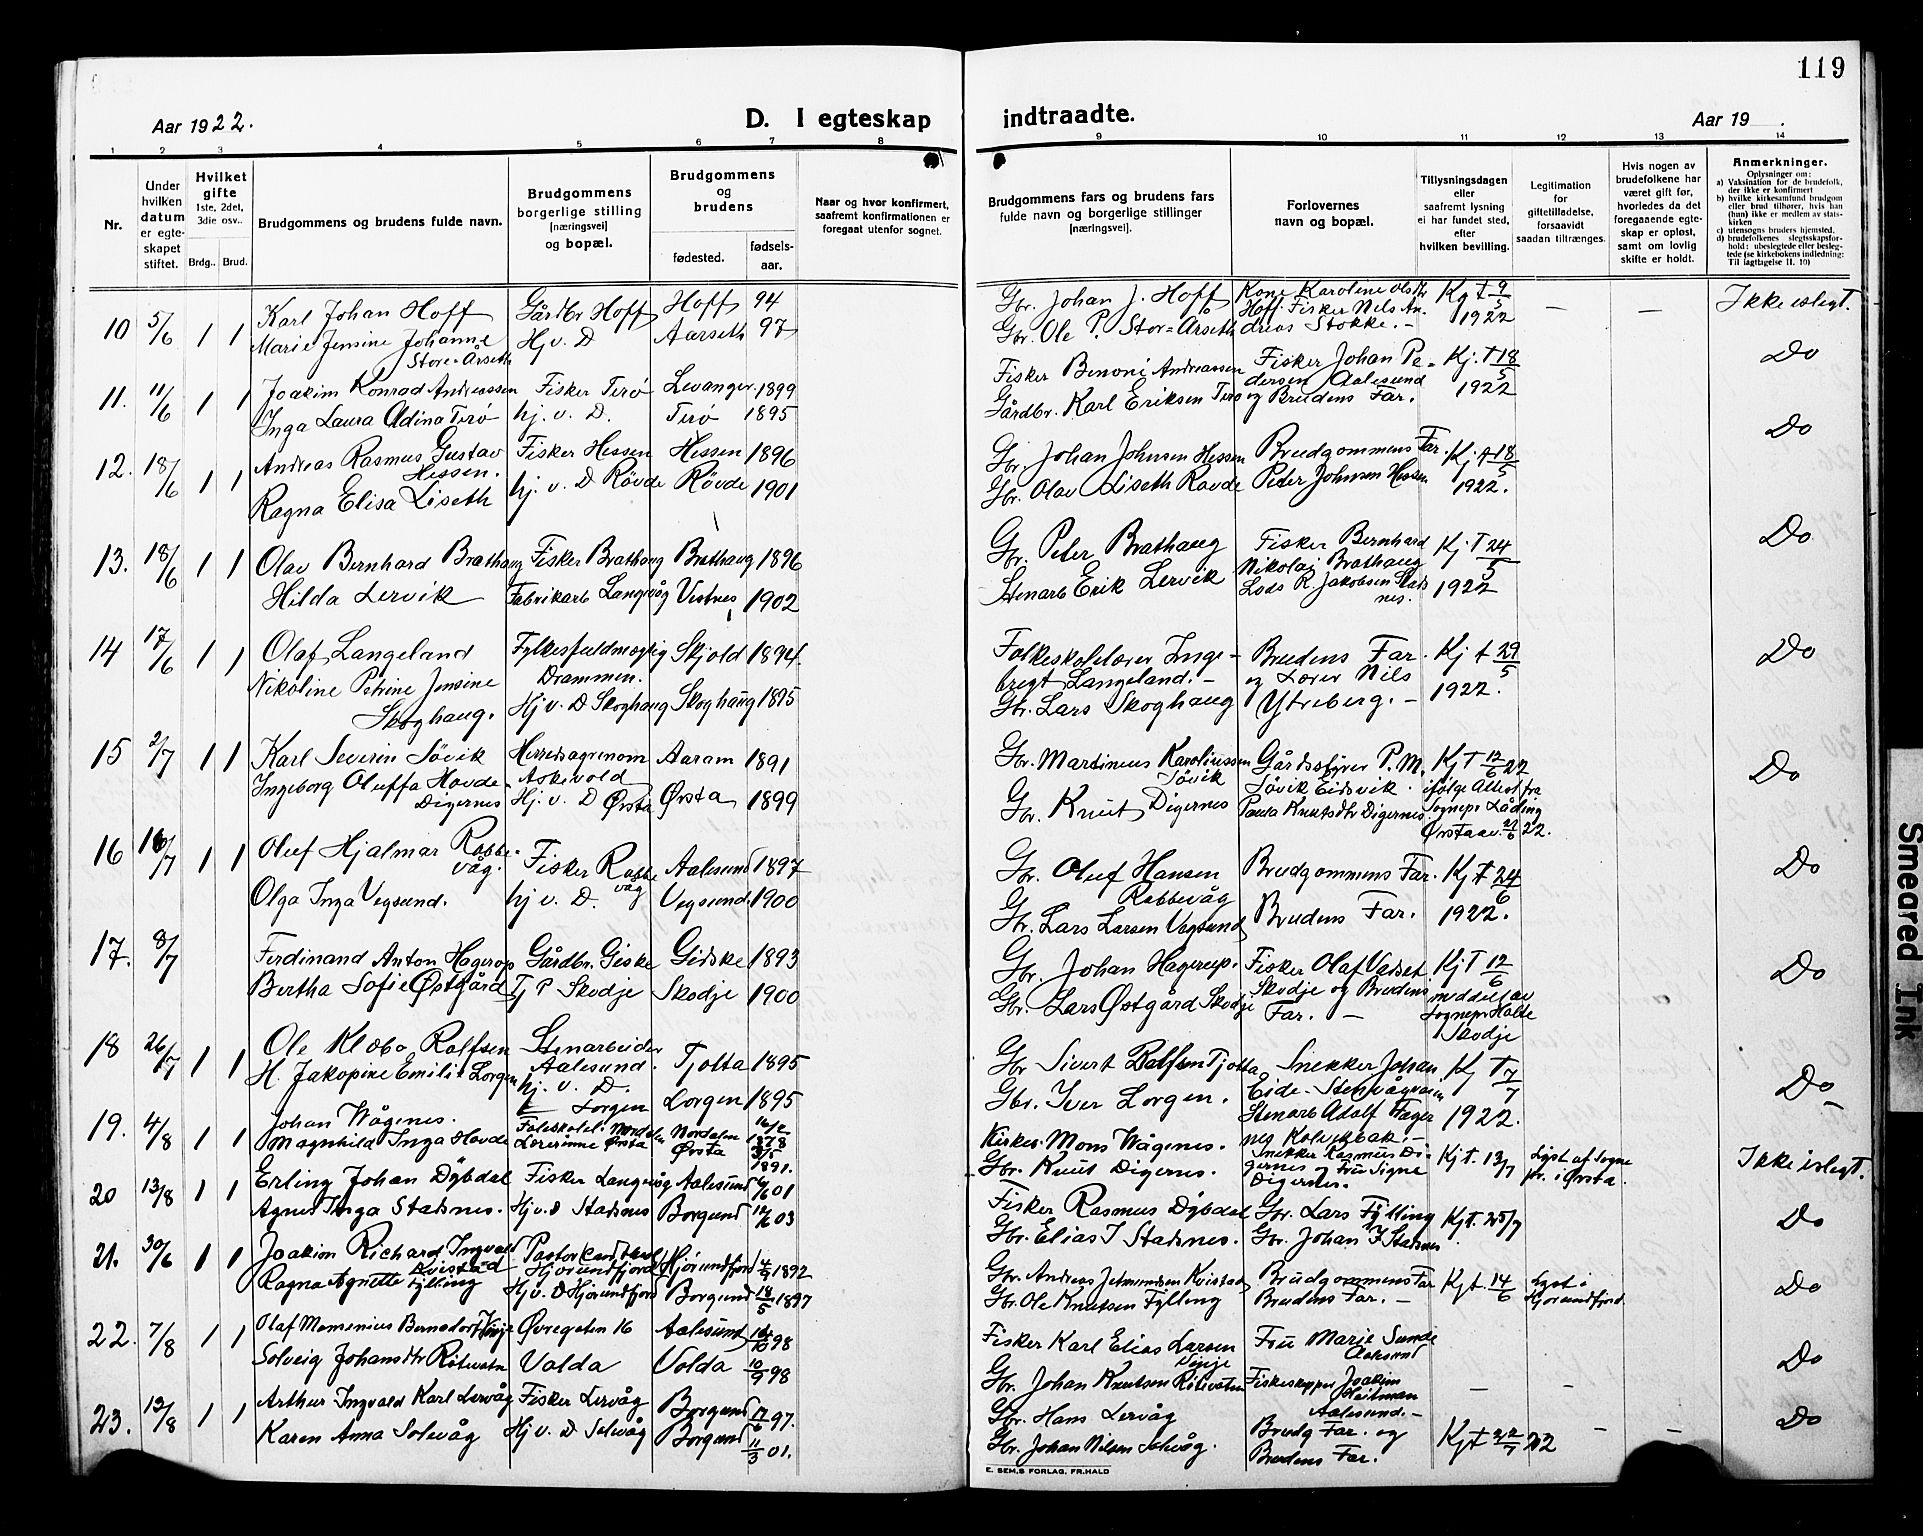 119
Aar 1922.
D. I egteskap indtraadte.
Aar 19 .
1 2 3 4 5 6 7 8 9 10 11 12 13 14
Nr.
Under hvilken datum er egteskapet stiftet.
Hvilket gifte 1ste, 2det, 3die osv..
Brdg.. Brud.
Brudgommens og brudens fulde navn.
Brudgommens borgerlige stilling [næringsvei] og bopæl.
Brudgommens og brudens
fødested.
fødsels-aar.
Naar og hvor konfirmert, saafremt konfirmationen er foregaat utenfor sognet.
Brudgommens fars og brudens fars fulde navn og borgerlige stillinger [næringsvei].
Forlovernes navn og bopæl.
Tillysningsdagen eller saafremt lysning ei har fundet sted, efter hvilken bevilling.
Legitimation for giftetilladelse, forsaavidt saadan tiltrænges.
Hvis nogen av brudefolkene har været gift før, hvorledes da det foregaaende egteskap er opløst, samt om lovlig skifte er holdt.
Anmerkninger.
Oplysninger om:
a) Vaksination for de brudefolk, der ikke er konfirmert
b) hvilke kirkesamfund brudgom eller brud tilhører, hvis han (hun) ikke er medlem av statskirken
c) utensogns bruders hjemsted.
d) brudefolkenes slegtsskapsforhold: ubeslegtede eller beslegtede (se kirkebokens indledning: Til iagttagelse II. 10)
10 5/6 1 1 Karl Johan Hoff Gårdbr Hoff Hoff 94
Marie Jensine Johanne Store-Årseth Hj v. D Aarseth 97
Gbr. Johan J. Hoff Kone Karoline Olsdtr Kg t 9/5 1922 — — Ikke islegt.
Gbr. Ole P. Stor=Årseth Hoff. Fisker Nils Andreas Stokke.-
11. 11/6 1 1 Joakim Konrad Andreassen Fisker Terø Levanger 1899
Inga Laura Odina Terø hj. v. D. Terø 1895
Fisker Benoni Andreassen Fisker Johan Pedersen Aalesund Kj. t 18/5 1922 Do
Gårdbr. Karl Eriksen Terø og Brudens Far.
12. 18/6 1 1 Andreas Rasmus Gustav Hessen. Fisker Hessen Hessen 1896
Ragna Elisa Liseth hj. v. D Røvde Røvde 1901
Gbr. Johan Johnsen Hessen Brudgommens Far. Kj. t 18/5 1922. Do
Gbr. Olav Liseth Røvde Peter Johnsen Hessen
13. 18/6 1 1 Olav Bernhard Brathaug Fisker Brathaug Brathaug 1896
Hilda Lervik Fabrikarb Langevåg Vestnes 1902
Gbr. Peter Brathaug Fisker Bernhard Nikolai Brathaug Kj. T 24/5 1922 Do
Stenarb Erik Lervik Lods R. Jakobsen Stadsnes.
14 17/6 1 1 Olaf Langeland Fylkesfuldmægtig Drammen. Skjold 1894.
Nikoline Petrine Jensine Skoghaug. Hj v. D Skoghaug Skoghaug 1895
Folkeskolelærer Ingebregt Langeland.- Brudens Far. Kj t 29/5 1922. Do
Gbr. Lars Skoghaug og Lærer Nils Ytreberg.-
15 2/7 1 1 Karl Severin Søvik Herredsagronom Askevold Aaram 1891
Ingeborg Oluffa Hovde-Digernes Hj. v. D Ørsta Ørsta 1899
Gbr. Martinius Karoliussen Søvik Gårdsstyrer P. M. Søvik Eidsvik. Kj T 12/6 22 Do
Gbr. Knut Digernes Paula Knutsdtr Digernes. ifølge Attest fra Sognepr Låding Ørsta av 21/6 22.
16 16/7 1 1 Oluf Hjalmar Robbevåg. Fisker Robbevåg Aalesund 1897
Olga Inga Vegsund. hj v. D. Vegsund. 1900
Gbr. Oluf Hansen Robbevåg Brudgommens Far. Kj t 24/6 1922. Do
Gbr. Lars Larsen Vegsund Brudens Far.
17. 8/7 Ferdinand Anton Hagerup Gårdbr. Giske Gidske 1893
Bertha Sofie Østgård Tj P Skodje Skodje 1900
Gbr. Johan Hagerup. Fisker Olaf Valset Skodje og Brudens Far. - Kj T 12/6 Do
Gbr. Lars Østgård Skodje meddelt av Sognepr Holte Skodje
18 26/7 1 1 Ole Klæbo Rolfsen Stenarbeider Aalesund. Tjotta 1895
H. Jakopine Emilie Lorgen hj. v. D. Lorgen Lorgen 1895
Gbr Sivert Rolfsen Tjotta Snekker Johan Eide- Stenvågveien Kj T 7/7 1922. Do
Gbr. Iver Lorgen. Stenarb Adolf Hagernes Kolvikbak.-
19. 4/8 1 1 Johan Wågenes. Folkskolel. Nordalen Nordalen 16/2 1878
Magnhild Inga Hovde Lærerinne Ørsta Ørsta 3/5 1891.
Kirkes. Mons Wågenes. Snekker Rasmus Digernes og Fru Signe Digernes. Kj t. 13/7 Lyst af Sognepr. i Ørsta. Ikke islegt.
Gbr. Knut Digernes.
20 13/8 1 1 Erling Johan Dybdal Fisker Langevåg Aalesund 6/6 01
Agnes Inga Stadsnes. Hj v. d Stadsnes Borgund 12/6 03
Fisker Rasmus Dybdal Gbr. Lars Fylling Kj t. 25/7 Do
Gbr. Elias J Stadsnes. Gbr. Johan J Stadsnes
21. 30/6 1 1 Joakim Richard Ingvald Kvistad Pastor Hjørundfjord Hjørundfjord 4/9 1892
Ragna Agnette Fylling Hj v. D Hjørundfjord Borgund 18/5 1897
Gbr. Andreas Johnundsen Kvistad Brudgommens Far Kj t 14/6 Lyst i Hjørundfjord. Do
Gbr. Ole Knutsen Fylling Brudens Far. -
22. 7/8 1 1 Olaf Momenius Bernadorf Vinje Øvregaten 16 Aalesund 14/10 98
Solveig Johansdtr Rotevatn Volda Volda 10/9 98
Fisker Karl Elias Larsen Vinje Fru Marie Sunde Aalesund Do
Gbr. Johan Knutsen Rotevatn Fiskeskipper Joakim Aalesund.- - -
23. 12/8 1 1 Arthur Ingvald Karl Lervåg Fisker Lervåg Borgund 17/6 97.
Karen Anna Solevåg Hj v. D Solevåg Borgund 11/3 01.
Gbr. Hans Lervåg Brudg Far. og Kj t 22/7 22 - - Do
Gbr. Johan Nilsen Solevåg. Brudens Far.
E. SEM,S FORLAG, FR.HALD
Smeared Ink